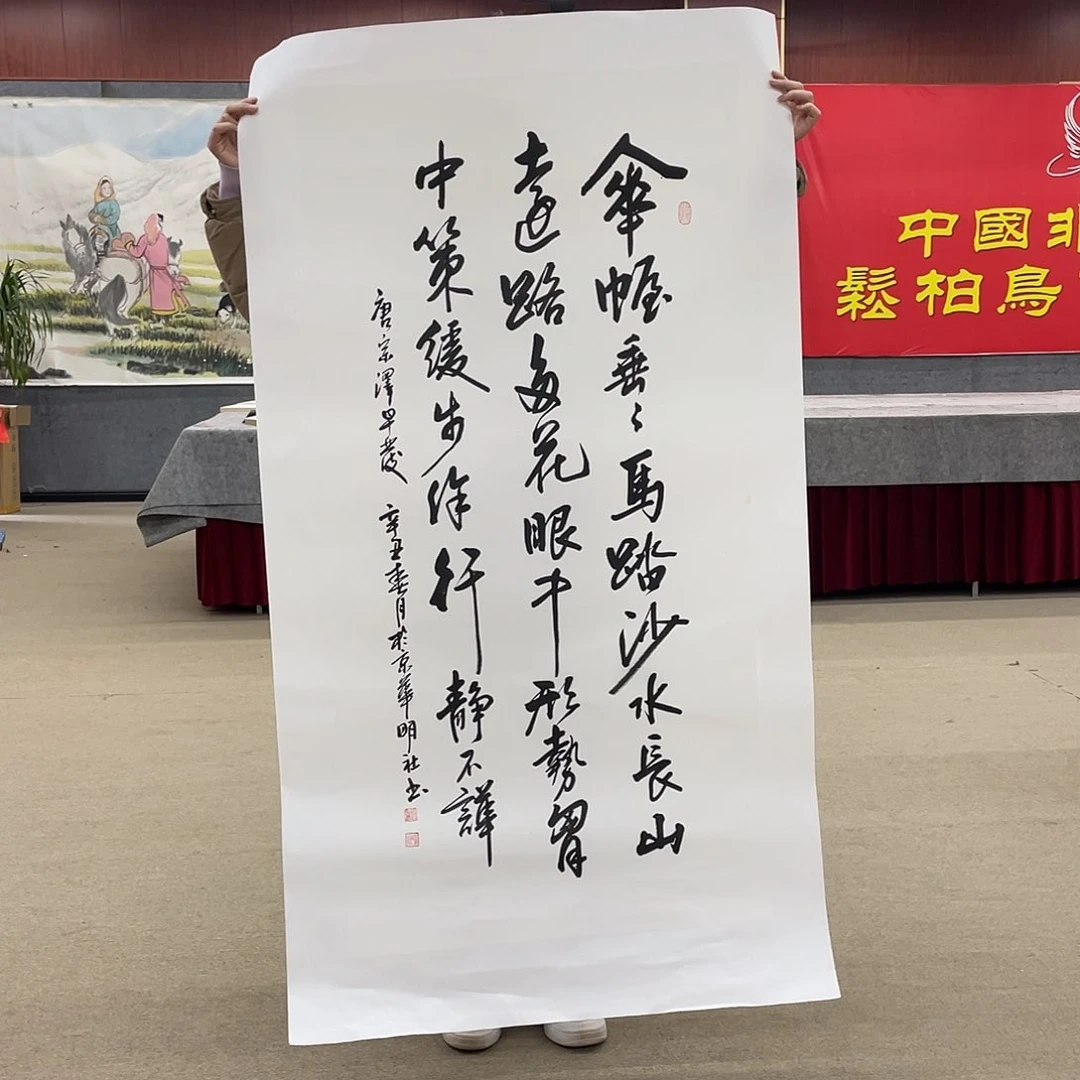 傘幄垂〻馬踏沙水長山
遠路多花眼中形勢胷
中策緩步徐行静不譁
唐宗澤早發 辛丑春月於京華明社书
中國
鬆柏鳥